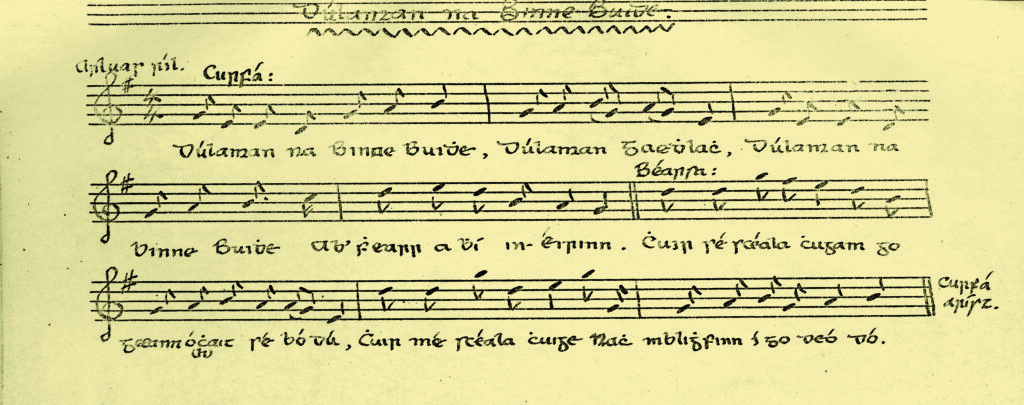 Dúlaman na Binne Buiḋe.
Ar luas ríl. Curfá:
Dúlaman na Binne Buiḋe, Dúlaman Gaeḋlaċ, Dúlaman na
Béarsa:
Binne Buiḋe Ab' ḟearr a bí in-Éirinn. Ċuir sé scéala ċugam go
sé bó dú, Ċuir mé scéala ċuige Naċ mbliġfinn í go deó dó.
Curfá
arís.